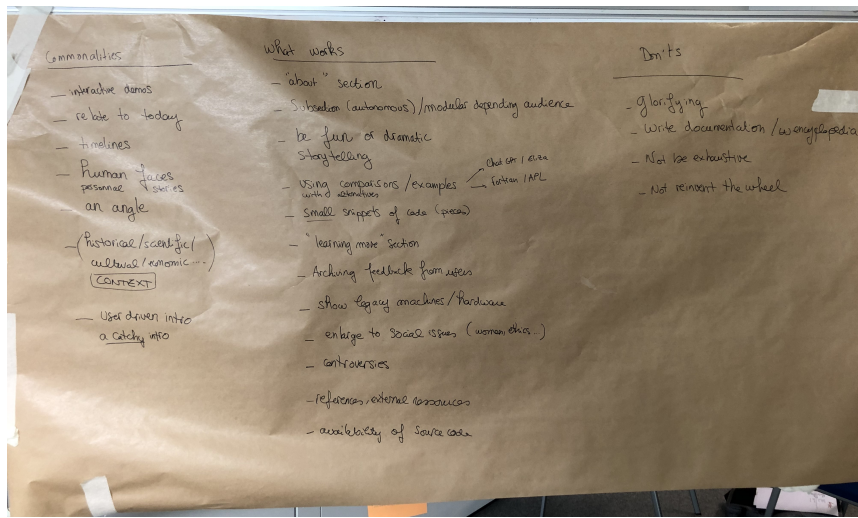 Commonalities
- interactive demos
- relate to today
- timelines
- human faces
personnal stories
- an angle
- (historical/scientific/
cultural/economic....)
CONTEXT
- User driven intro
a catchy intro
What works
- "about" section
- Subsection (autonomous)/modular depending audience
- be fun or dramatic
storytelling
- using comparisons/examples
with alternatives
Chat GPT / ELIZA
Fortran / APL
- small snippets of code (pieces)
- "learning more" section
- Archiving feedback from users
- show legacy machines/hardware
- enlarge to social issues (women, ethics...)
- controversies
- references, external ressources
- availability of source code
Don'ts
- glorifying
- write documentation / encyclopedia
- Not be exhaustive
- Not reinvent the wheel